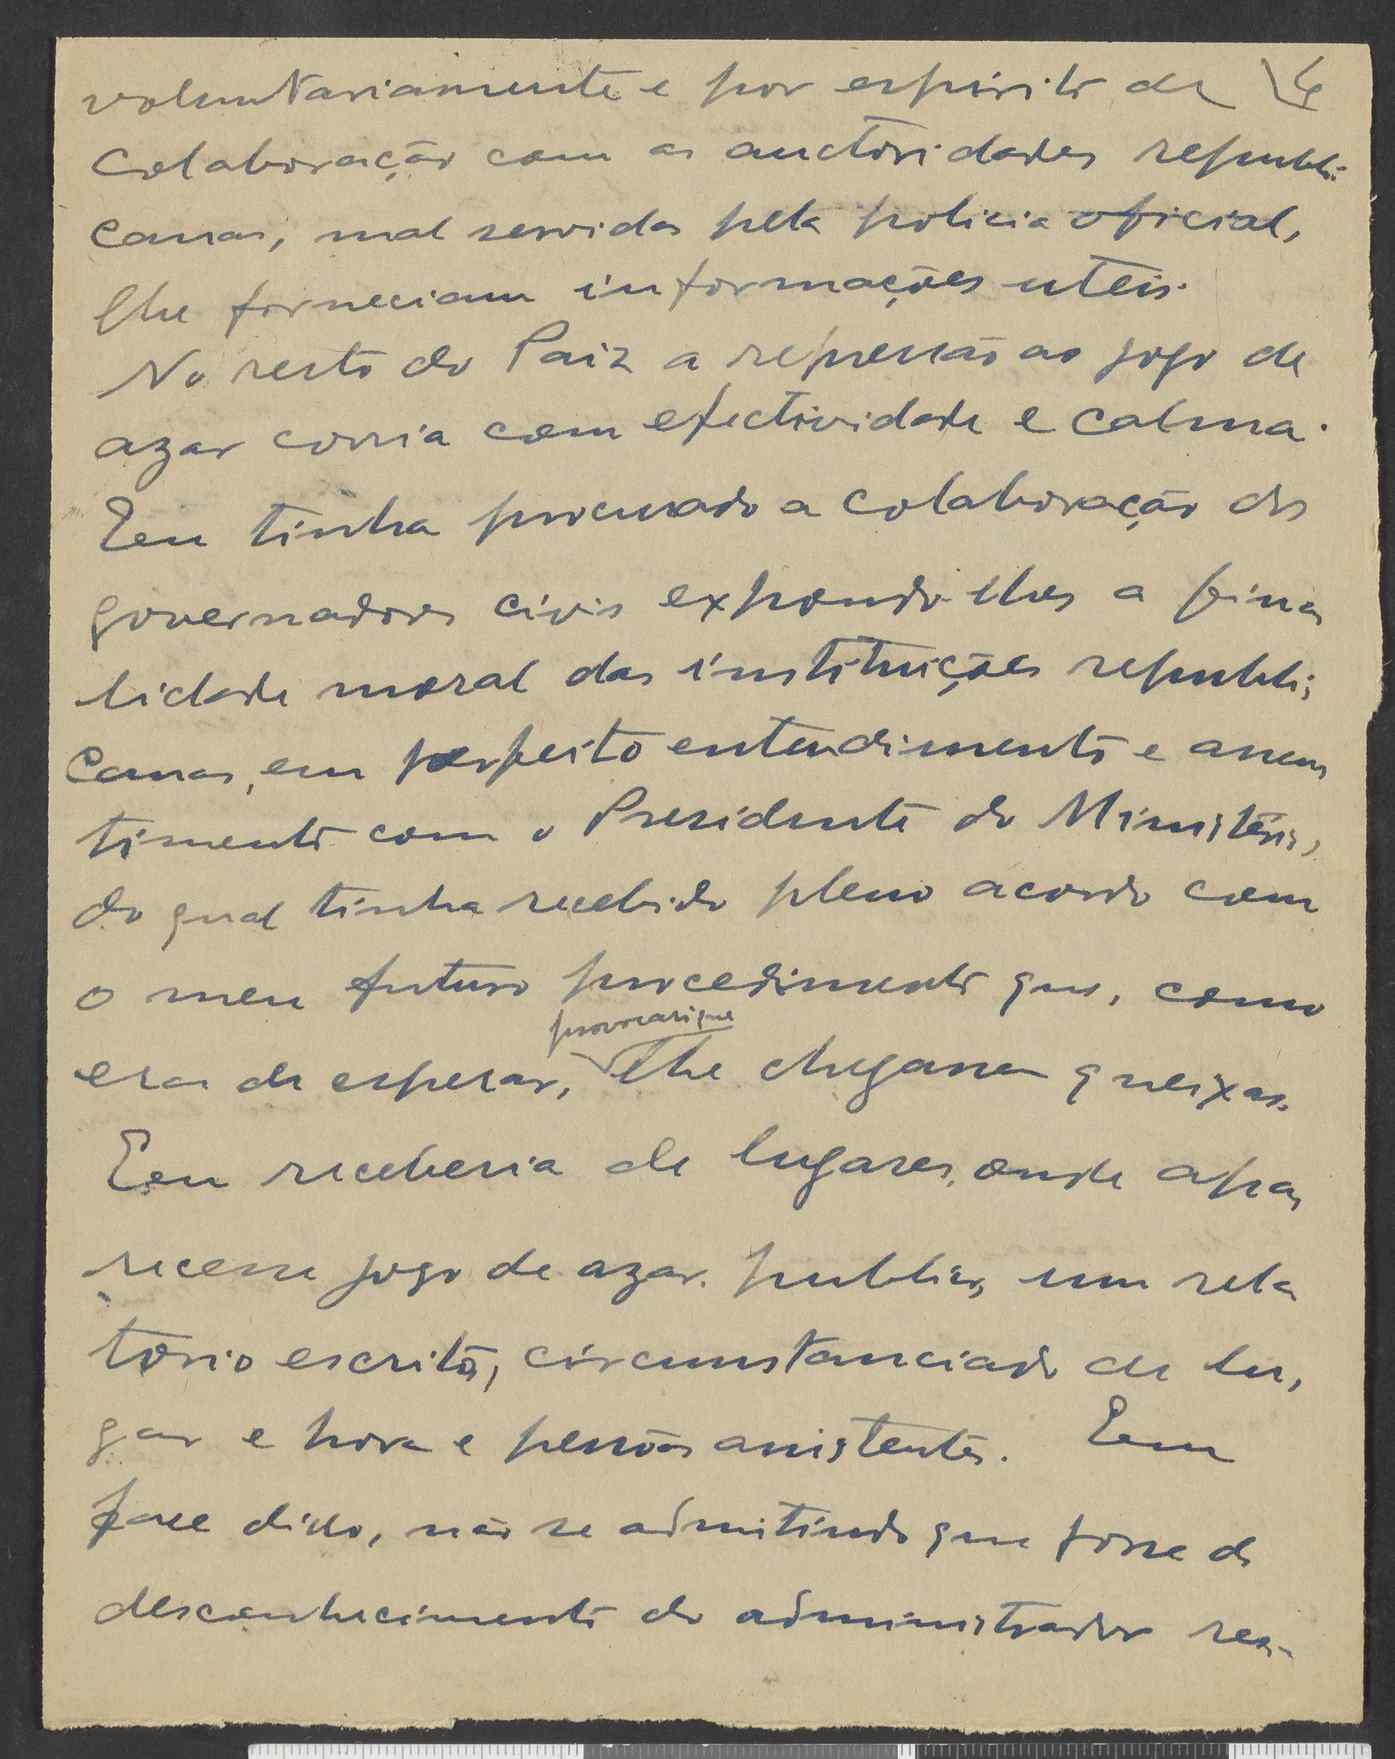 voluntariamente e por espirito de
colaboração com as auctoridades republi-
canas, mal servidas pela policia oficial,
lhe forneciam informações uteis.
No resto do Paiz a repressão ao jogo de
azar corria com efectividade e calma.
Eu tinha procurado a colaboração dos
governadores civis expondo-lhes a fina
lidade moral das instituições republi-
canas, em perfeito entendimento e assen
timento com o Presidente do Ministério,
do qual tinha recebido pleno acordo com
o meu futuro procedimento que, como
provocari que
era de esperar, lhe chegassem queixas.
Eu receberia de lugares, onde apa
recesse jogo de azar publico, um rela
torio escrito, circunstanciado de lu-
gar e hora e pessoas assistentes. Em
face disso, não se admitindo que fosse do
desconhecimento do administrador res-